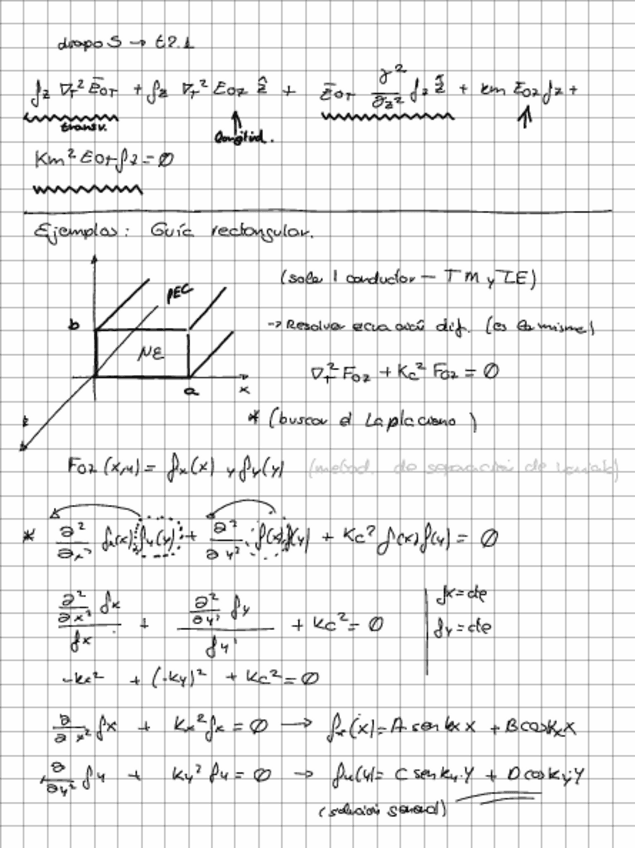 diapo 5 → t2.1
f_z ∇_T² Ē_OT + f_z ∇_T² E_OZ ẑ + Ē_OT ∂²/∂z² f_z ẑ + km E_OZ f_z +
transv.
longitud.
Km² E_OT f_z = Ø
Ejemplos: Guía rectangular.
(solo 1 conductor – TM y TE)
PEC
b
→ Resolver ecuación dif. (es la misma)
ME
∇_T² F_OZ + Kc² F_OZ = Ø
a x
* (buscar el Laplaciano)
F_OZ (x,y) = f_x(x) y f_y(y) (metod. de separación de variab)
* ∂²/∂x² f_x(x) f_y(y) + ∂²/∂y² f(x) f(y) + Kc² f(x) f(y) = Ø
∂²/∂x² fx / fx + ∂²/∂y² fy / fy + Kc² = Ø
fx = cte
fy = cte
-kx² + (-ky)² + Kc² = Ø
∂/∂x² fx + Kx² fx = Ø → fx(x) = A sen kx X + B cos kx X
∂/∂y² fy + Ky² fy = Ø → fy(y) = C sen ky·Y + D cos ky·Y
(solución general)